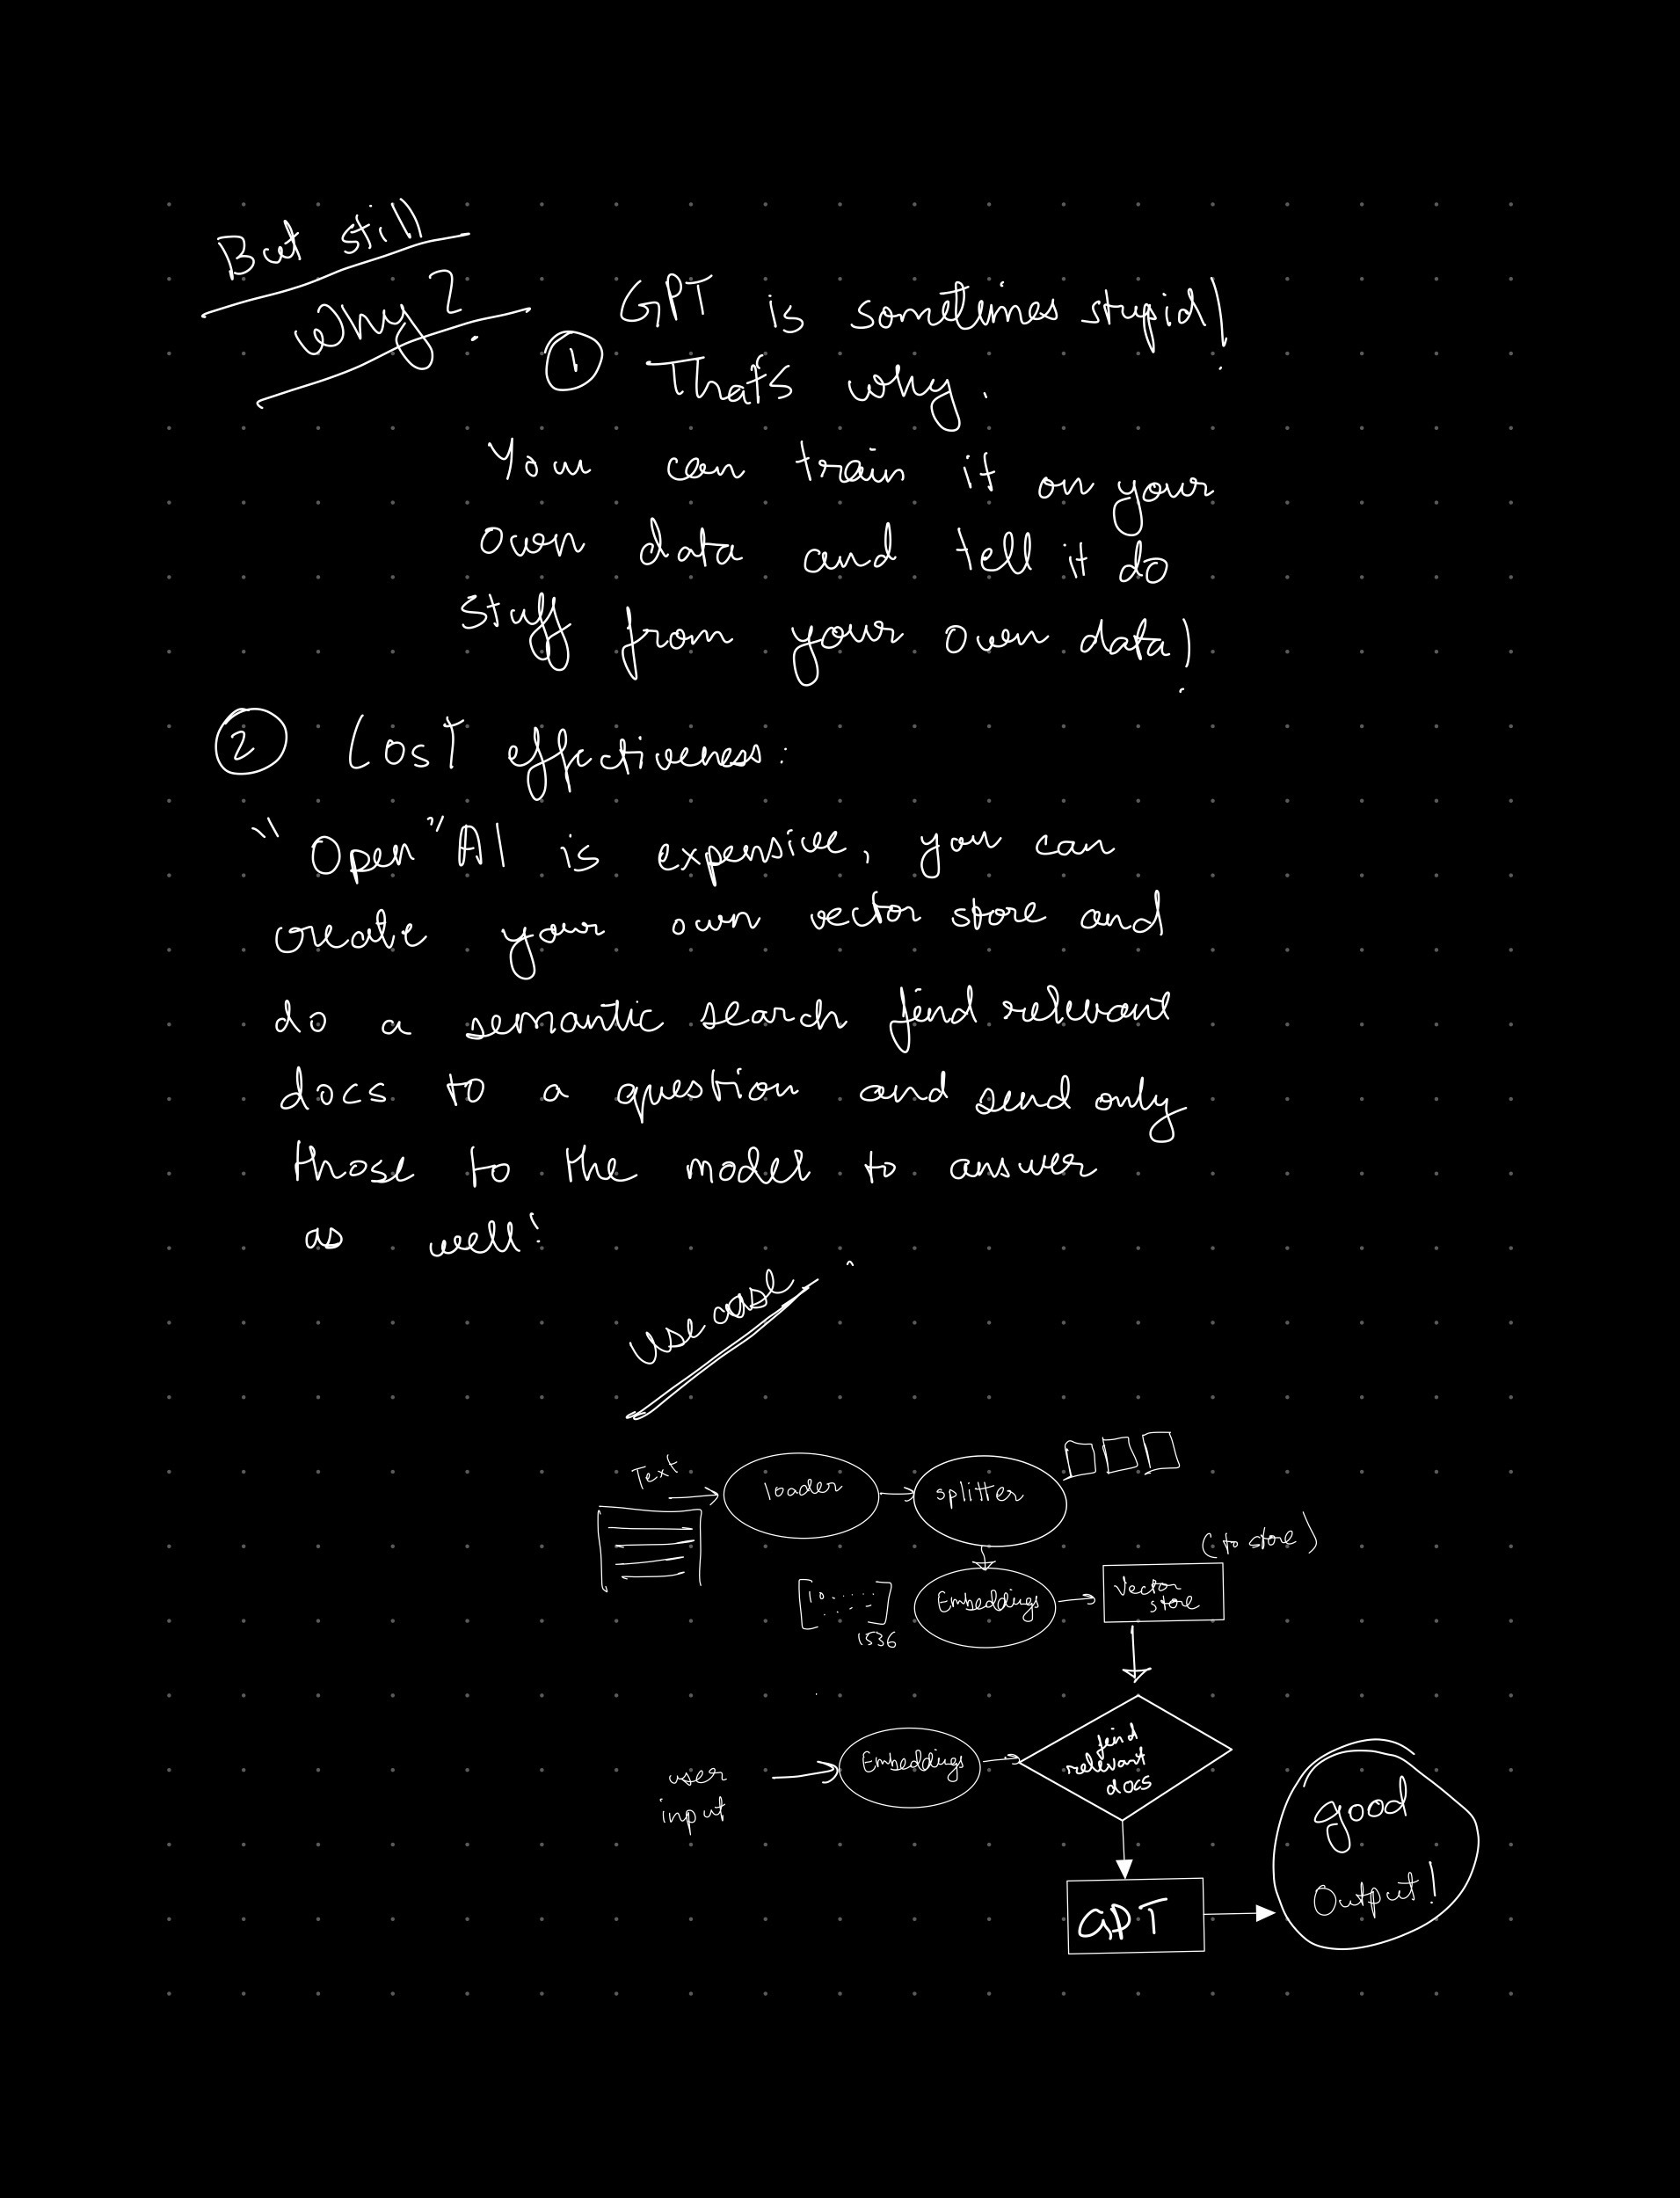 But still
Why?
① GPT is sometimes stupid!
That's why.
You can train it on your
own data and tell it do
stuff from your own data!
② Cost effectiveness:
"Open" AI is expensive, you can
create your own vector store and
do a semantic search find relevant
docs to a question and send only
those to the model to answer
as well!
use case
Text
loader
splitter
(to store)
[10.....
..--]
1536
Embeddings
Vector
store
user
input
Embeddings
find
relevant
docs
good
Output!
GPT